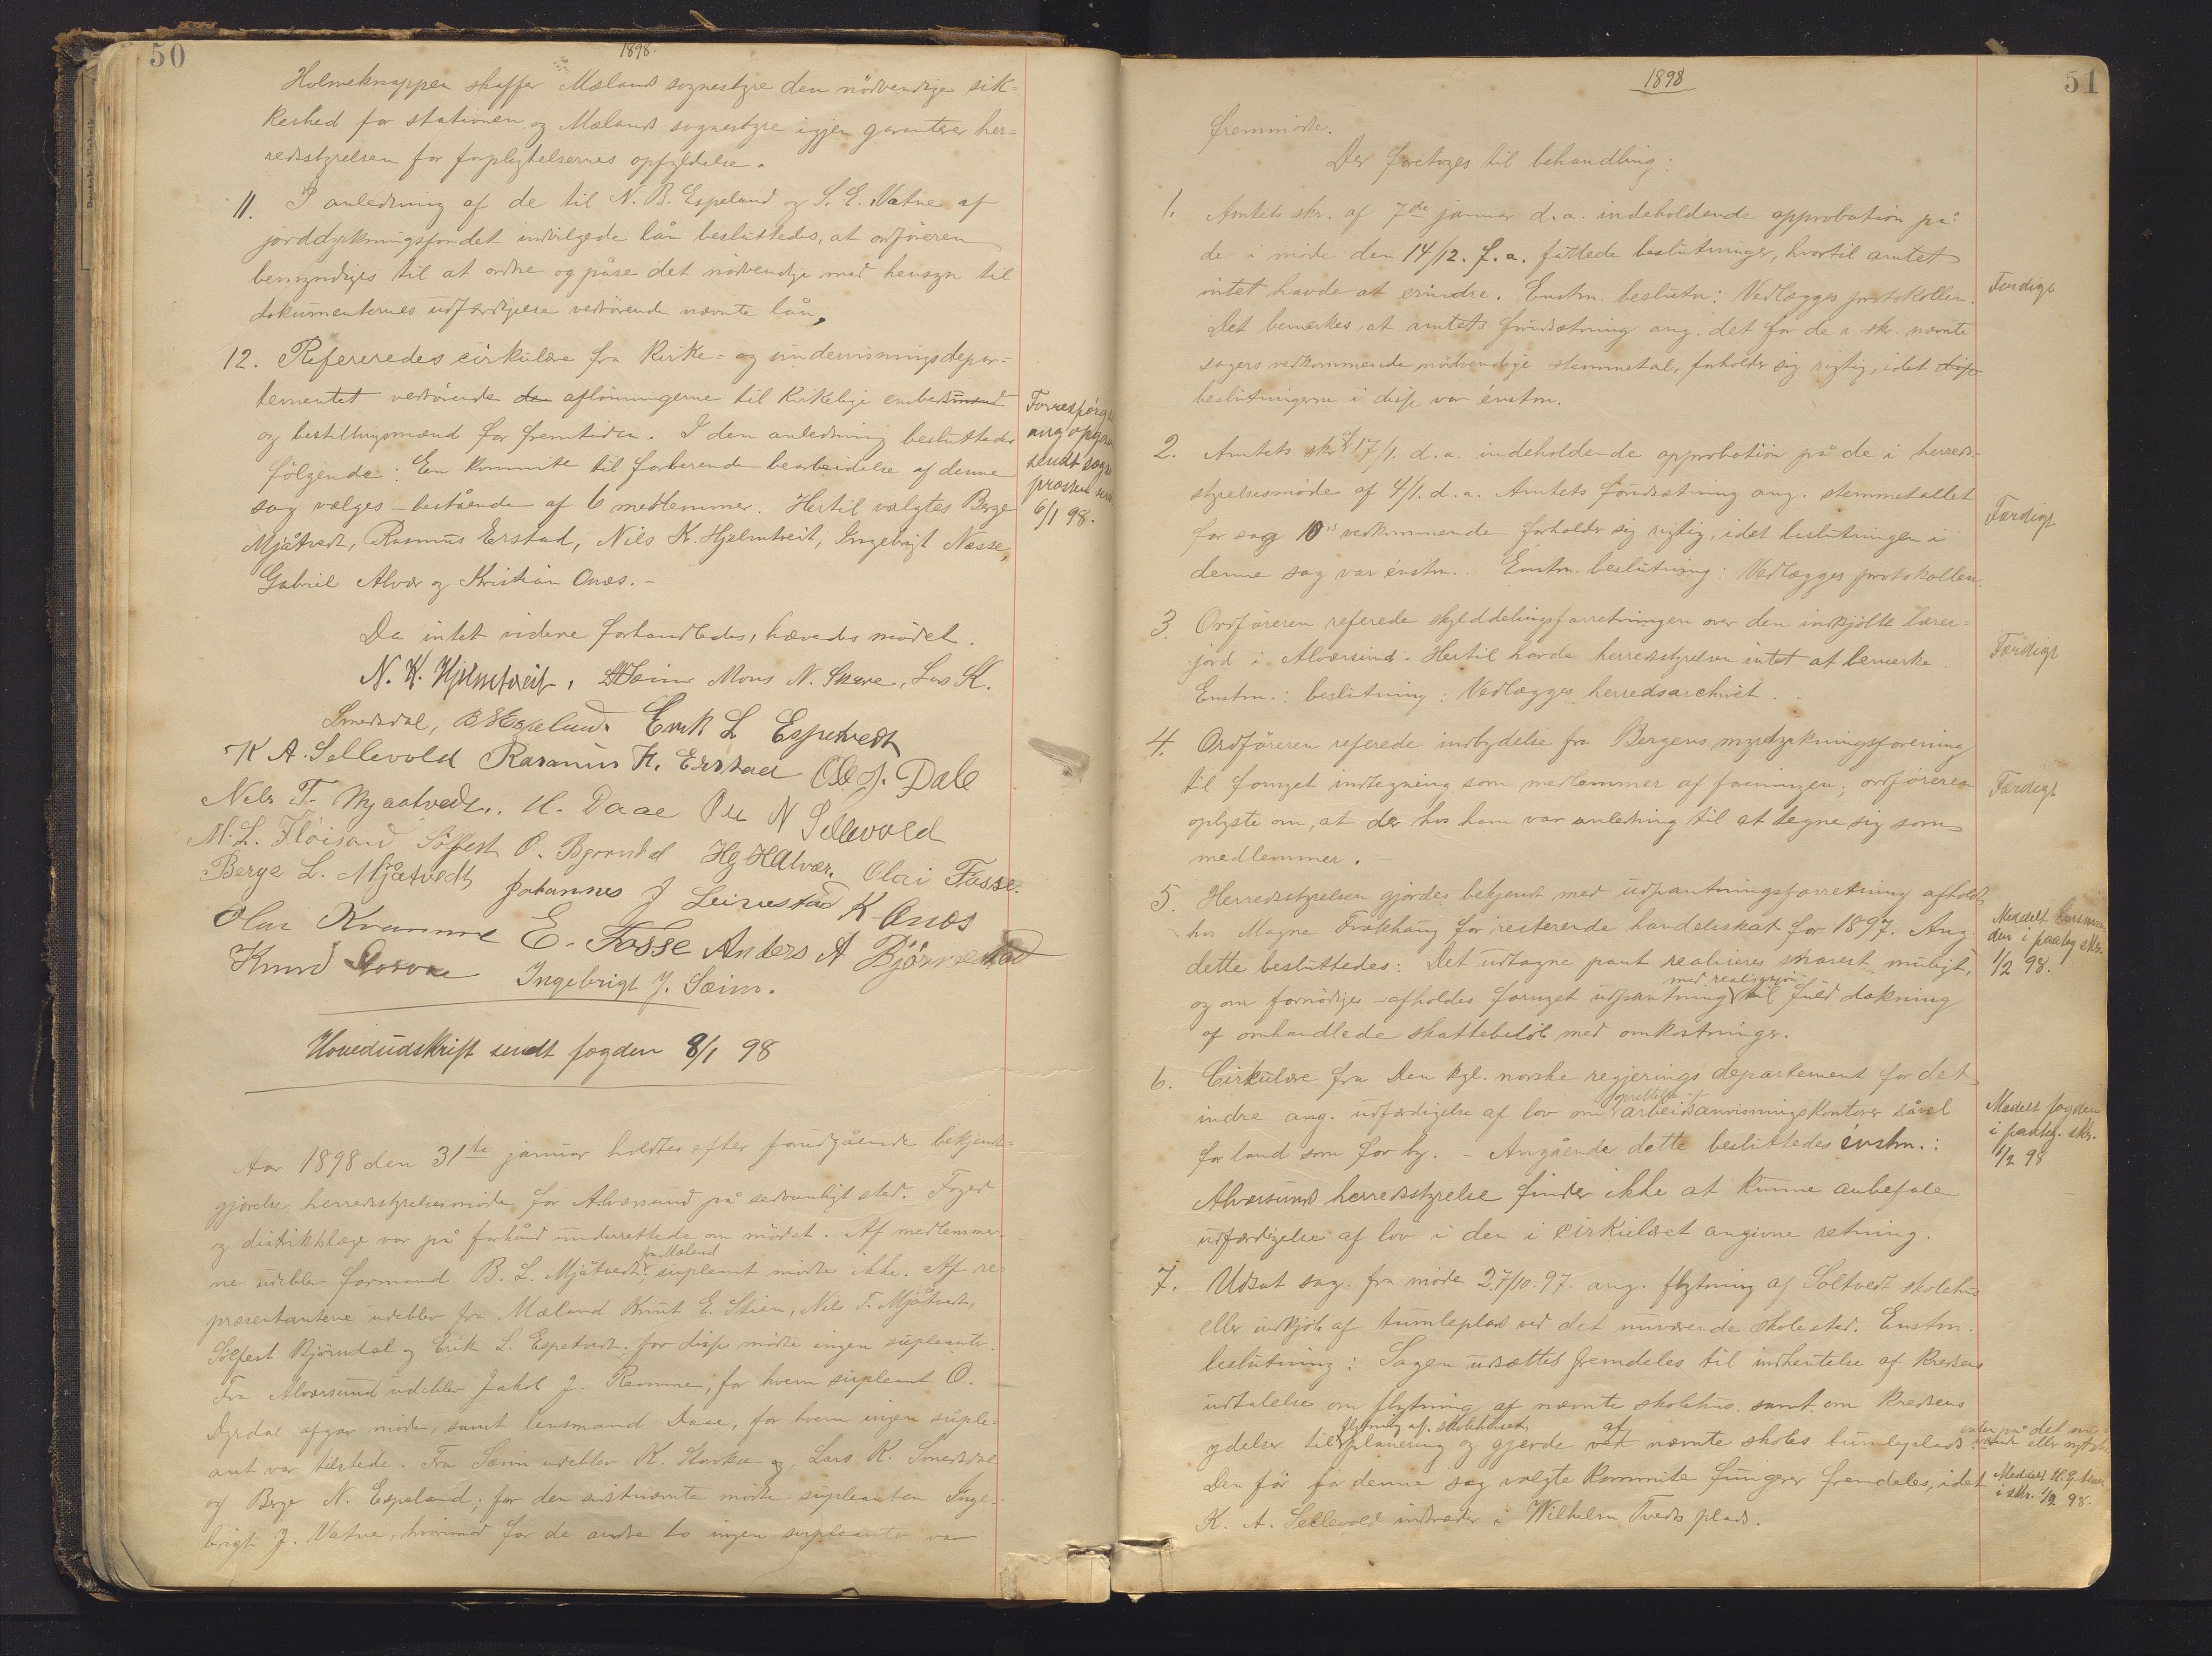 50
1898.
Holmeknappen skaffer Mælands sognestyre den nödvendige sik-
kerhed for stationen og Mælands sognestyre igjen garanterer her-
redsstyrelsen for forpligtelsernes opfyldelse.
11. I anledning af de til N. B. Espeland og S. E. Vatne af
jorddyrkningsfondet indvilgede lån besluttedes, at ordföreren
bemyndiges til at ordne og påse det nödvendige med hensyn til
dokumenternes udfærdigelse vedrörende nævnte lån.
12. Refereredes cirkulære fra Kirke- og undervisningsdepar-
tementet vedrörende den aflönningerne til kirkelige embedsmænd
og bestillingsmænd for fremtiden. I den anledning besluttedes
fölgende: En kommite til forberende bearbeidelse af denne
sag vælges – bestående af 6 medlemmer. Hertil valgtes Berge
Mjåtvedt, Rasmus Erstad, Nils K. Hjelmtveit, Ingebrigt Næsse,
Gabriel Alvær og Kristian Onæs. –
Forespörgs
ang opgav
sendt sogne
præsten
6/1 98.
Da intet videre forhandledes, hævedes mödet.
N. K. Hjelmtveit, Mons N. Skare, Lars K.
Smedsdal, B N Espeland. Erik L Espetvedt
K A. Sellevold Rasmus H. Erstad Ole J. Dale
Nels T. Myaatvedt, H. Daae Ole N Sellevold
M. L. Flöisand Sölfest O. Bjørndal Hg H Alvær. Olai Fosse.
Berge L. Mjåtvedt Johannes J Leirestad K Onæs
Olai Kvamme E. Fosse Anders A Björnestad
Knud Ingebrigt J. Sæim.
Hovedudskrift sendt fogden 8/1 98
Aar 1898 den 31te januar holdtes efter forudgående bekjendt-
gjörelse herredsstyrelsesmöde for Alværsund på sedvanligt sted. Foged
og distriktslæge var på forhånd underrettede om mödet. Af medlemmer-
ne udeblev formand B. L. Mjåtvedt, fra Mæland supleant mödte ikke. Af re-
præsentanterne udeblev fra Mæland Knut E. Stien, Nils T. Mjåtvedt,
Sölfest Björndal og Erik L. Espetvedt; for disse mödte ingen supleanter.
Fra Alværsund udeblev Jakob J. Remme, for hvem supleant O.
Dyrdal afgav möde, samt lensmand Daae, for hvem ingen suple-
ant var tilstede. Fra Sæim udeblev K. og Lars K. Smedsdal
og Berge N. Espeland; for den sidstnævnte mödte supleanten Inge-
brigt J. Vatne, hvorimod for de andre to ingen supleanter var
1898
51
fremmödte.
Der foretoges til behandling:
1. Amtets skr. af 7de januar d. a. indeholdende approbation på
de i möde den 14/12. f. a. fattede beslutninger, hvortil amtet
intet havde at erindre. Enstm. beslutn: Vedlægges protokollen.
Det bemærkes, at amtets forudsætning ang. det for de i skr. nævnte
sagers vedkommende nödvendige stemmetal, forholder sig rigtig, idet disse
beslutningerne i disse var énstm.
Færdigt
2. Amtets skr af 17/1. d. a. indeholdende approbation på de i herreds-
styrelsesmöde af 4/1. d. a. Amtets forudsætning ang. stemmetallet
for sag 10's vedkommende forholder sig rigtig, idet beslutningen i
denne sag var énstm. Enstm. beslutning: Vedlægges protokollen.
Færdigt
3. Ordföreren referede skylddelingsforretningen over den indkjöbte lærer-
jord i Alværsund. Hertil havde herredsstyrelsen intet at bemærke.
Enstm.: beslutning: Vedlægges herredsarchivet. –
Færdigt
4. Ordföreren referede indbydelse fra Bergens myrdyrkningsforening
til fornyet indtegning som medlemmer af foreningen; ordföreren
oplyste om, at der hos ham var anledning til at tegne sig som
medlemmer. –
Færdigt
5. Herredsstyrelsen gjordes bekjendt med udpantningsforretning afholdt
hos Magne for resterende handelsskat for 1897. Ang.
dette besluttedes: Det udtagne pant realiseres snarest muligt,
og om fornödiges – afholdes fornyet udpantning med realisation til fuld dækning
af omhandlede skattebelöb med omkostninger.
Meddelt lensman
den i paateg skr.
1/2 98.
6. Cirkulære fra Den kgl. norske regjerings departement for det
indre ang. udfærdigelse af lov om oprettelse arbeidsanvisningskontorer såvel
for land som for by. – Angående dette besluttedes énstm.:
Alværsunds herredsstyrelse finder ikke at kunne anbefale
udfærdigelse af lov i den i cirkulæret angivne retning.
Meddelt fogden
i paateg. skr.
1/2 98
7. Udsat sag. fra möde 27/10. 97. ang. flytning af Soltvedt skolehus
eller indkjöb af tumleplads ved det nuværende skolested. Enstm.
beslutning: Sagen udsættes fremdeles til indhentelse af kredsens
udtalelse om flytning af nævnte skolehus. samt om kredsens
ydelser til flytning af skolehuset, planering og gjerde ved af nævnte skoles tumleplads enten på det nu-
værende eller nyt sted.
Den för for denne sag valgte kommite fungerer fremdeles, idet
K. A. Sellevold indtræder i Wilhelm Tvedts plads.
Meddelt
i skr. 1/2 98.